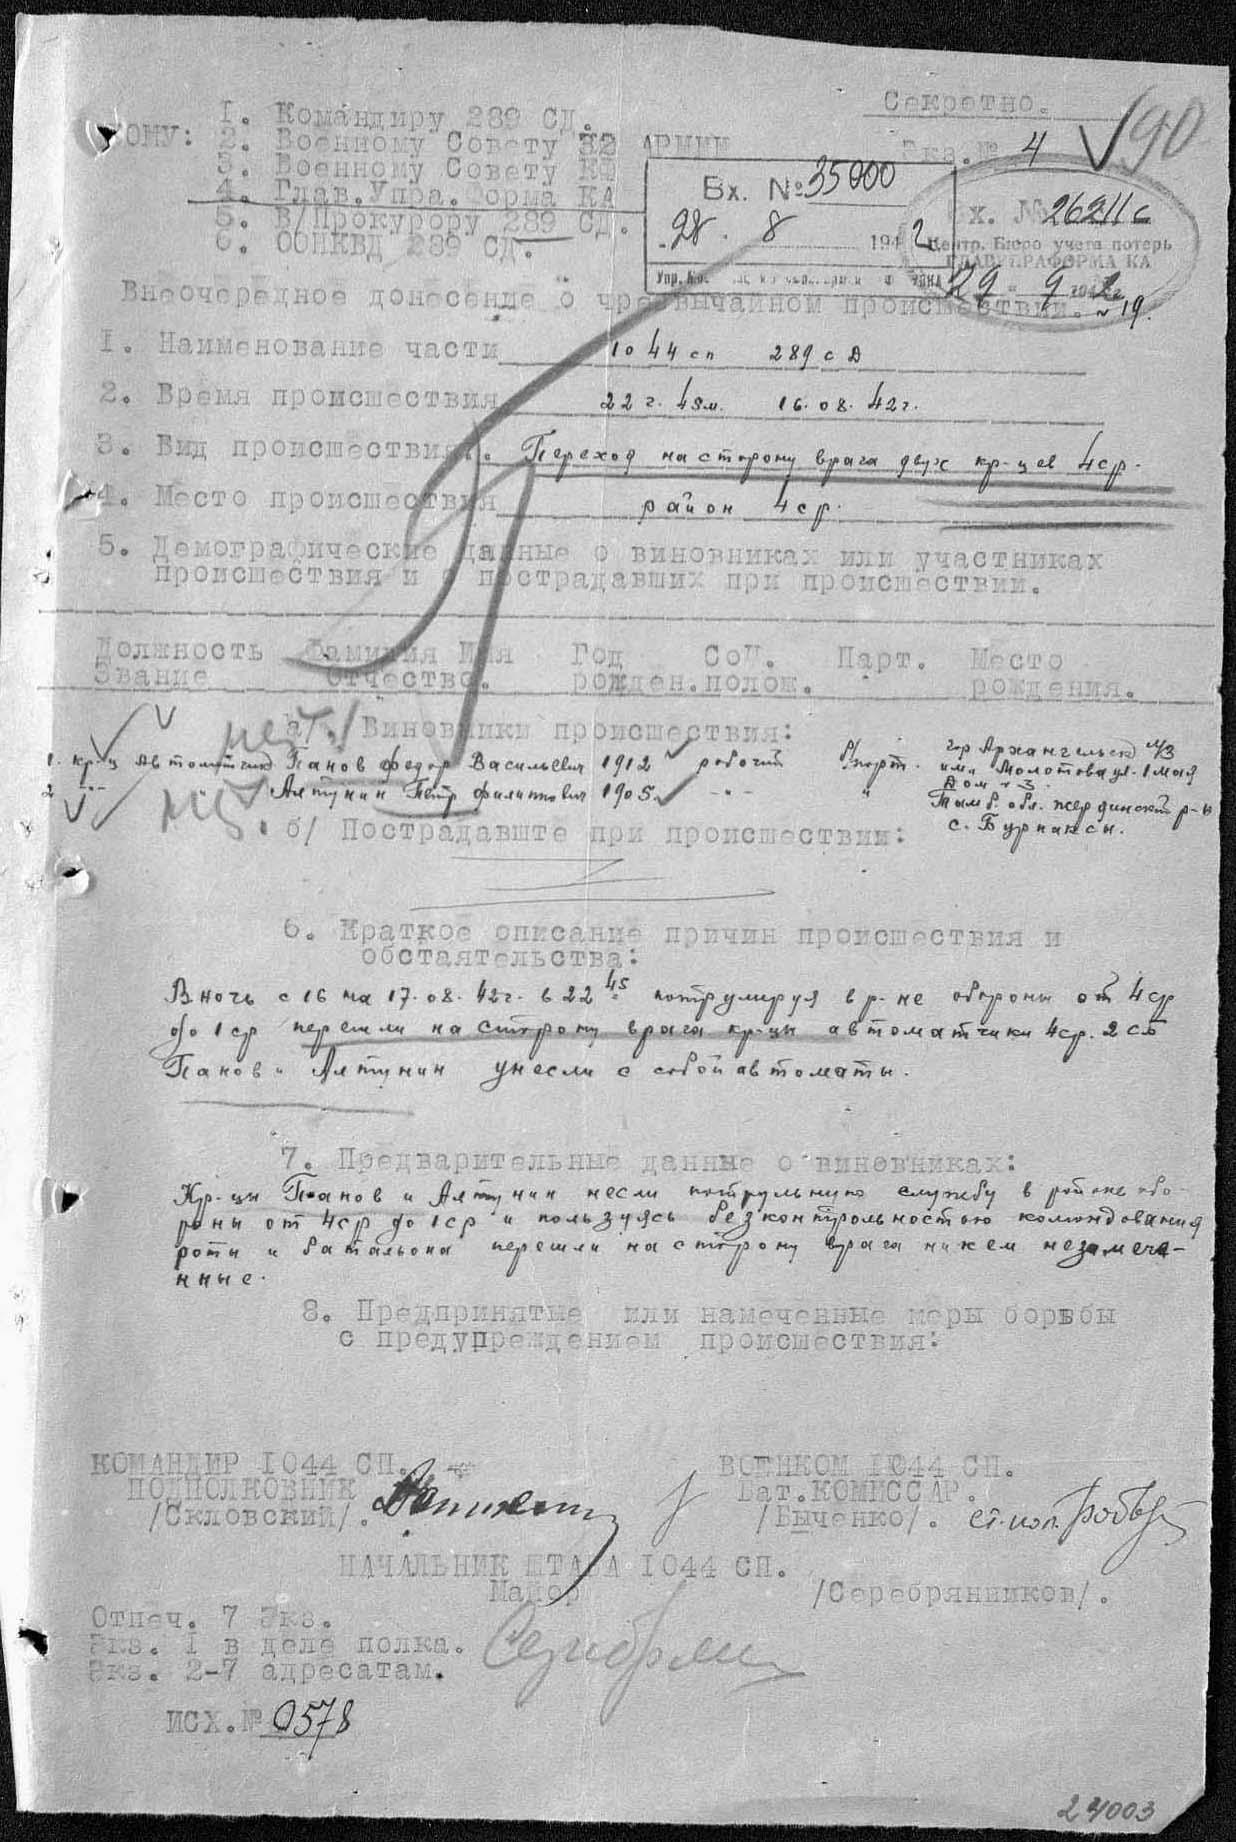 Секретно.
КОМУ: 1. Командиру 289 СД.
2. Военному Совету 32 АРМИИ
Экз.№ 4
90
3. Военному Совету КФ
4. Глав.Упра.Форма КА
5. В/Прокурору 289 СД.
6. ООНКВД 289 СД.
Вх. № 35000
28. 8 1942
Вх. № 26211с
Центр. Бюро учета потерь
ГЛАВУПРАФОРМА КА
29 9 1942
Внеочередное донесение о чрезвычайном происшествии. № 19.
1. Наименование части 1044 сп 289 с д
2. Время происшествия 22 г. 45м. 16.08.42г.
3. Вид происшествия. Переход на сторону врага двух кр-цев 4ср.
4. Место происшествия район 4ср.
5. Демографические данные о виновниках или участниках
происшествия и о пострадавших при происшествии.
Должность Фамилия Имя Год Соц. Парт. Место
Звание Отчество. рожден. полож. рождения.
нет
а/. Виновники происшествия:
1. кр-ц автоматчик Панов Федор Васильевич 1912 рабочий б/парт. гор Архангельск л/з
им. Молотова ул. 1 мая
дом № 3
2 -"- Алтунин Петр Филиппович 1905 -"- " Тамб. обл. жердинский р-н
с. Бурнаксы.
нет.
б/ Пострадавште при происшествии:
6. Краткое описание причин происшествия и
обстаятельства:
В ночь с 16 на 17.08.42г. в 22 45 потрулируя в р-не обороны от 4ср
до 1ср перешли на сторону врага кр-цы автоматчики 4ср. 2сб
Панов и Алтунин унесли с собой автоматы.
7. Предварительные данные о виновниках:
Кр-цы Панов и Алтунин несли потрульную службу в районе обо-
роны от 4ср до 1ср и пользуясь безконтрольностью командования
роты и батальона перешли на сторону врага никем незамече-
нные.
8. Предпринятые или намеченные меры борьбы
с предупреждением происшествия:
КОМАНДИР 1044 СП. ВОЕНКОМ 1044 СП.
ПОДПОЛКОВНИК Бат.КОМИССАР.
/Скловский/. /Быченко/. ст. пол.
НАЧАЛЬНИК ШТАБА 1044 СП.
Майор /Серебрянников/.
Отпеч. 7 Экз.
Экз. 1 в деле полка.
Экз. 2-7 адресатам.
ИСХ.№ 0578
24003